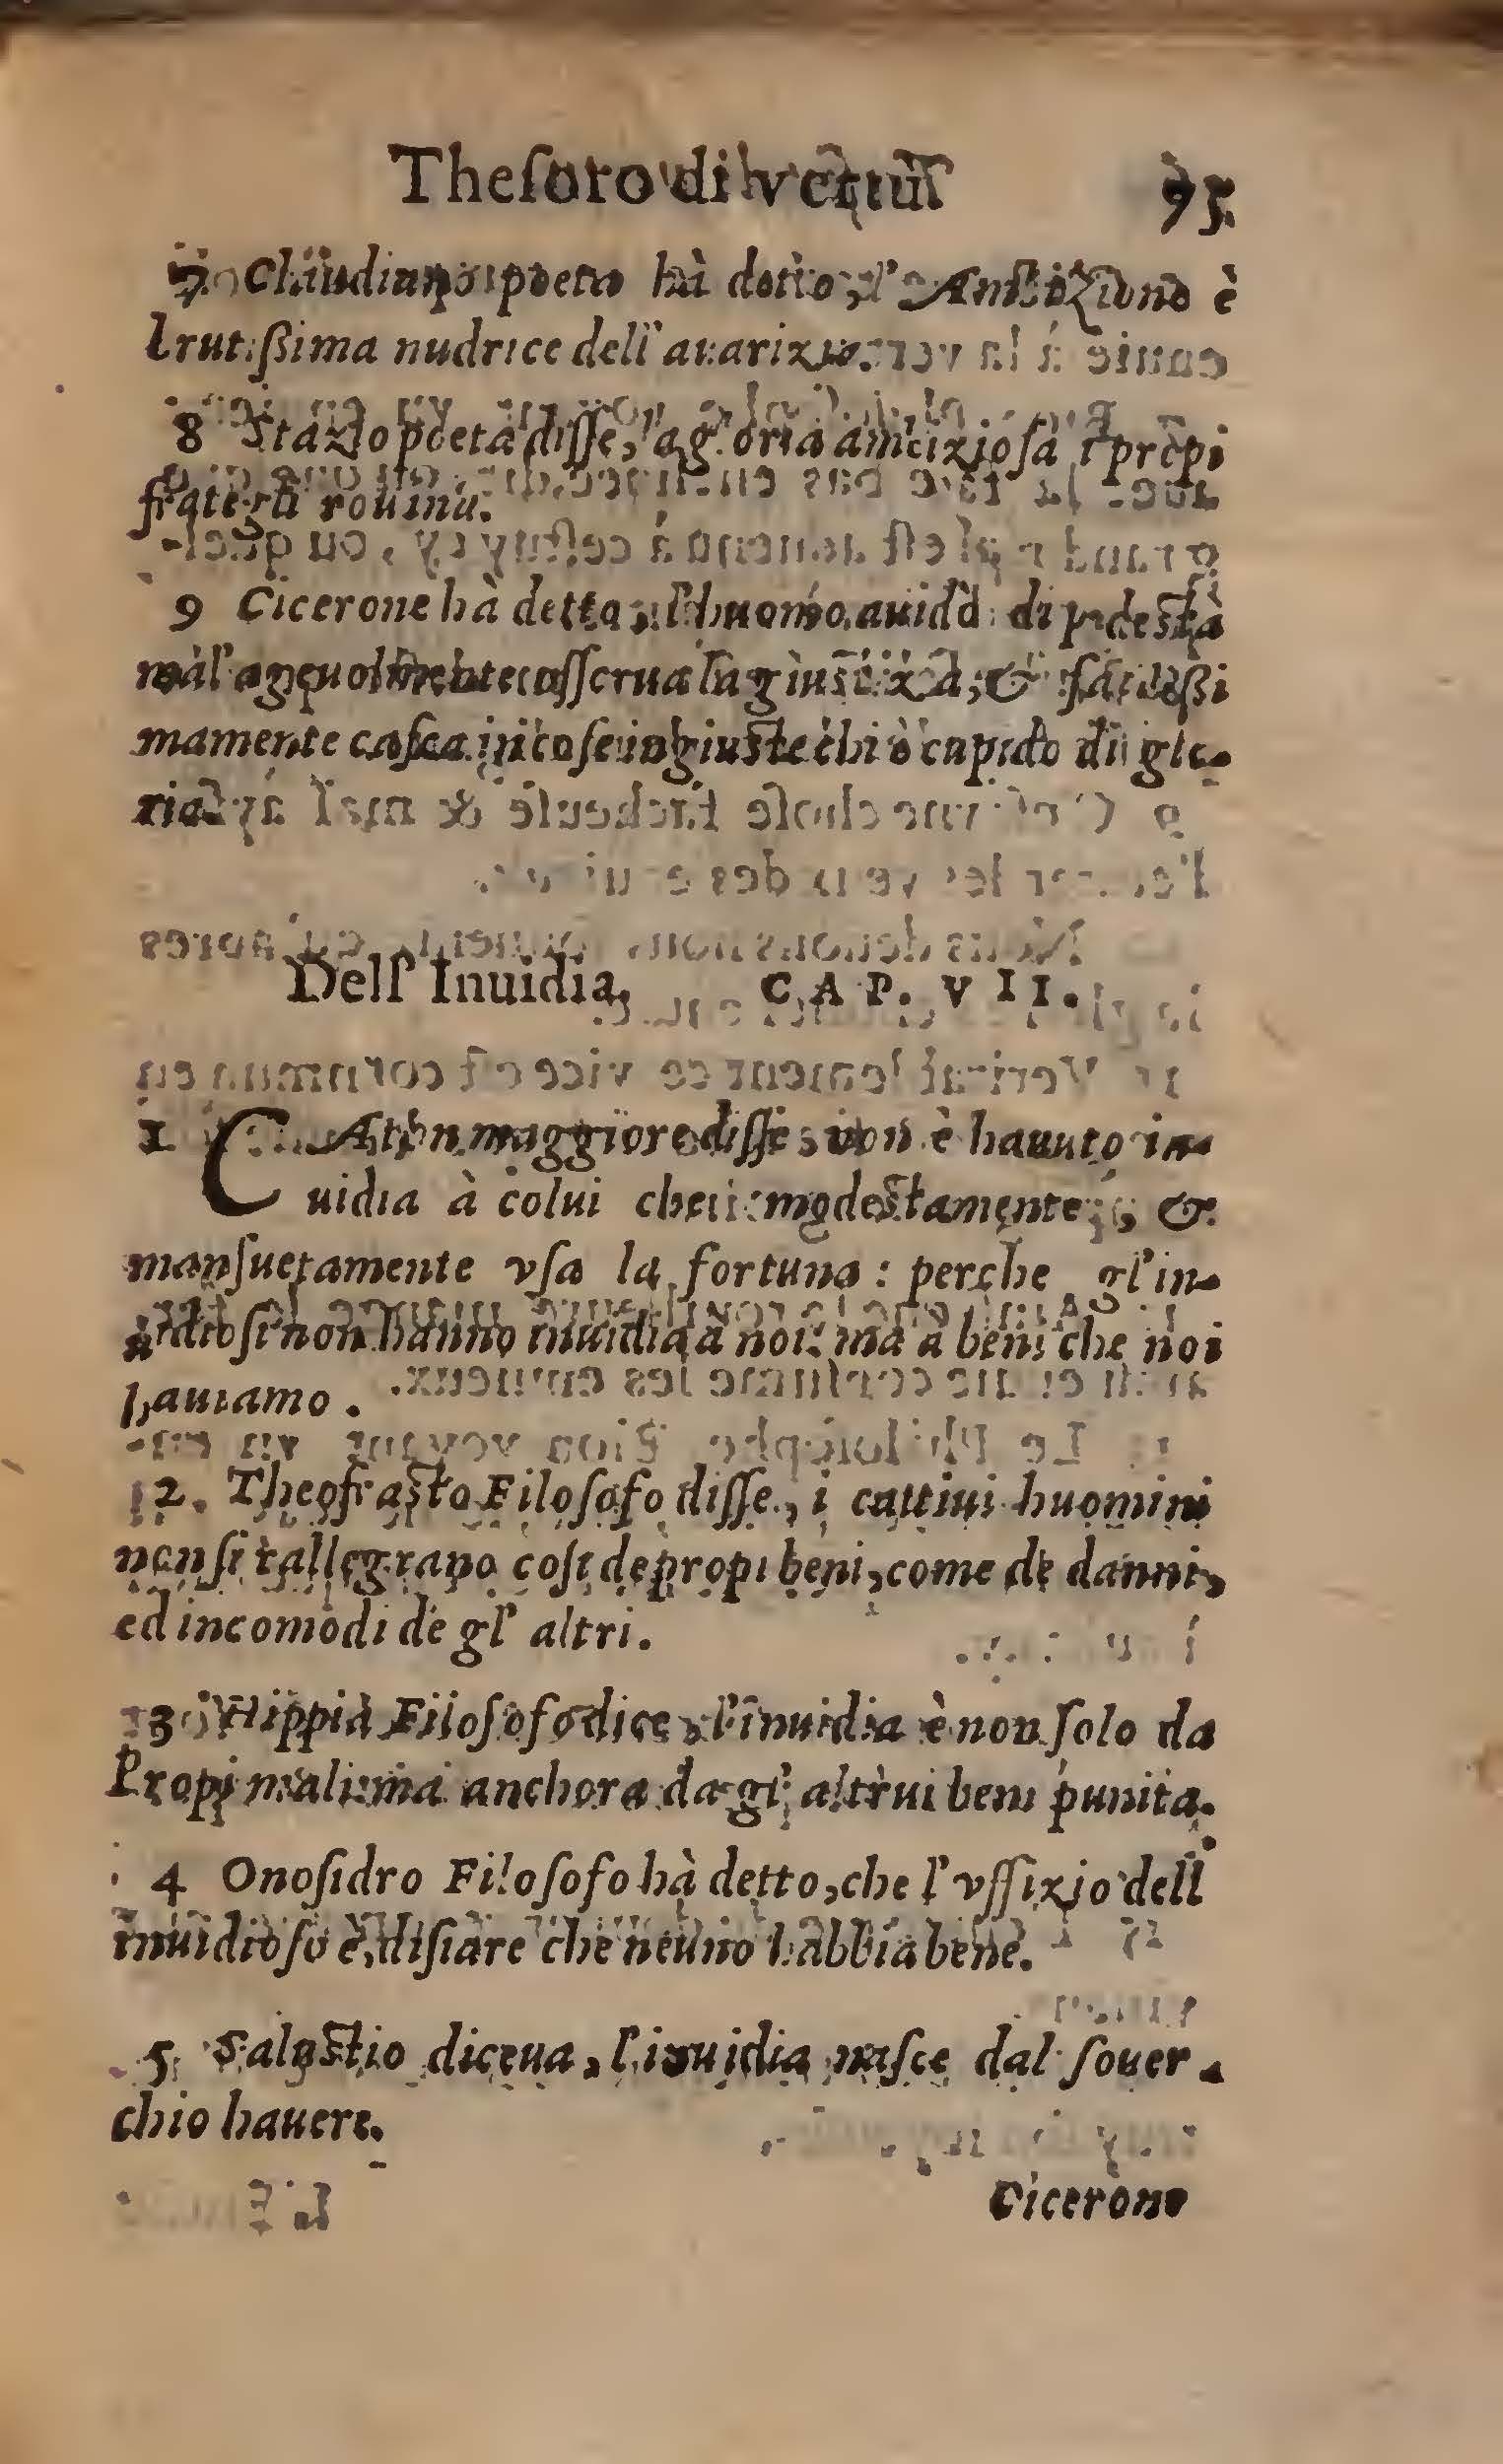 Theſoro di vertu 95.
7. Claudiano poeta hà detto, l'Ambizione è
brutißima nudrice dell' auarizia.
8 Stazio poeta diſſe, la gloria ambizioſa i propi
frategli rouina.
9 Cicerone hà detto, l'huomo auido di podestà
mal' ageuolmente oſſerua la giustizia, & facilißi
mamente caſca in coſe ingiuste chi è cupido di glo-
ria.
Dell' Inuidia. CAP. VII.
1 CAton maggiore diſſe, non è hauuto in-
uidia à colui che modestamente, &
manſuetamente vſa la fortuna: perche gl' in-
uidioſi non hanno inuidia à noi: ma à beni che noi
hauiamo.
2. Theofrasto Filoſofo diſſe, i cattiui huomini
non ſi rallegrano coſi de propi beni, come de danni,
ed incomodi de gl' altri.
3 Hippia Filoſofo dice, l'inuidia è non ſolo da
Propi mali: ma anchora da gl' altrui beni punita.
4 Onoſidro Filoſofo hà detto, che l' vffizio dell'
inuidioſo è, diſiare che neuno habbia bene.
5 Salustio diceua, l'inuidia naſce dal ſouer-
chio hauere.
Cicerone